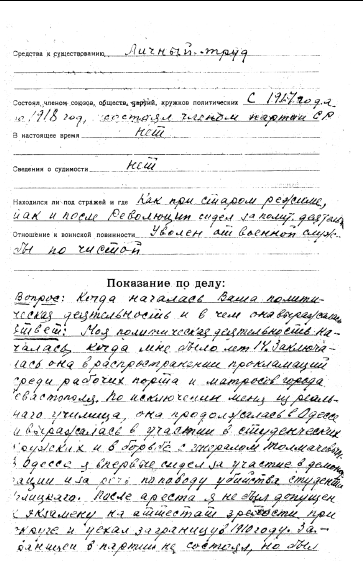 Средства к существованию Личный труд
Состоял членом союзов, обществ, партий, кружков политических С 1917 года
по 1918 год, состоял членом партии СР
В настоящее время нет
Сведения о судимости нет
Находился ли под стражей и где Как при старом режиме,
так и после Революции сидел за полит. деятельн
Отношение к воинской повинности Уволен от военной служ-
бы по чистой
Показание по делу:
Вопрос: Когда началась Ваша полити-
ческая деятельность и в чем она выражалась
Ответ: Моя политическая деятельность на-
чалась, когда мне было лет 14. Заключа-
лась она в распространении прокламаций
среди рабочих порта и матросов города
Севастополя. По исключении меня из реаль-
ного училища, она продолжалась в Одессе
и выражалась в участии в студенческих
кружках и в борьбе с генералом Толмачевым
В Одессе я впервые сидел за участие в демонст
рации и за речь по поводу убийства студента
После ареста я не был допущен
к экзамену на аттестат зрелости при
округе и уехал заграницу в 1910 году. За-
границей в партии не состоял, но был